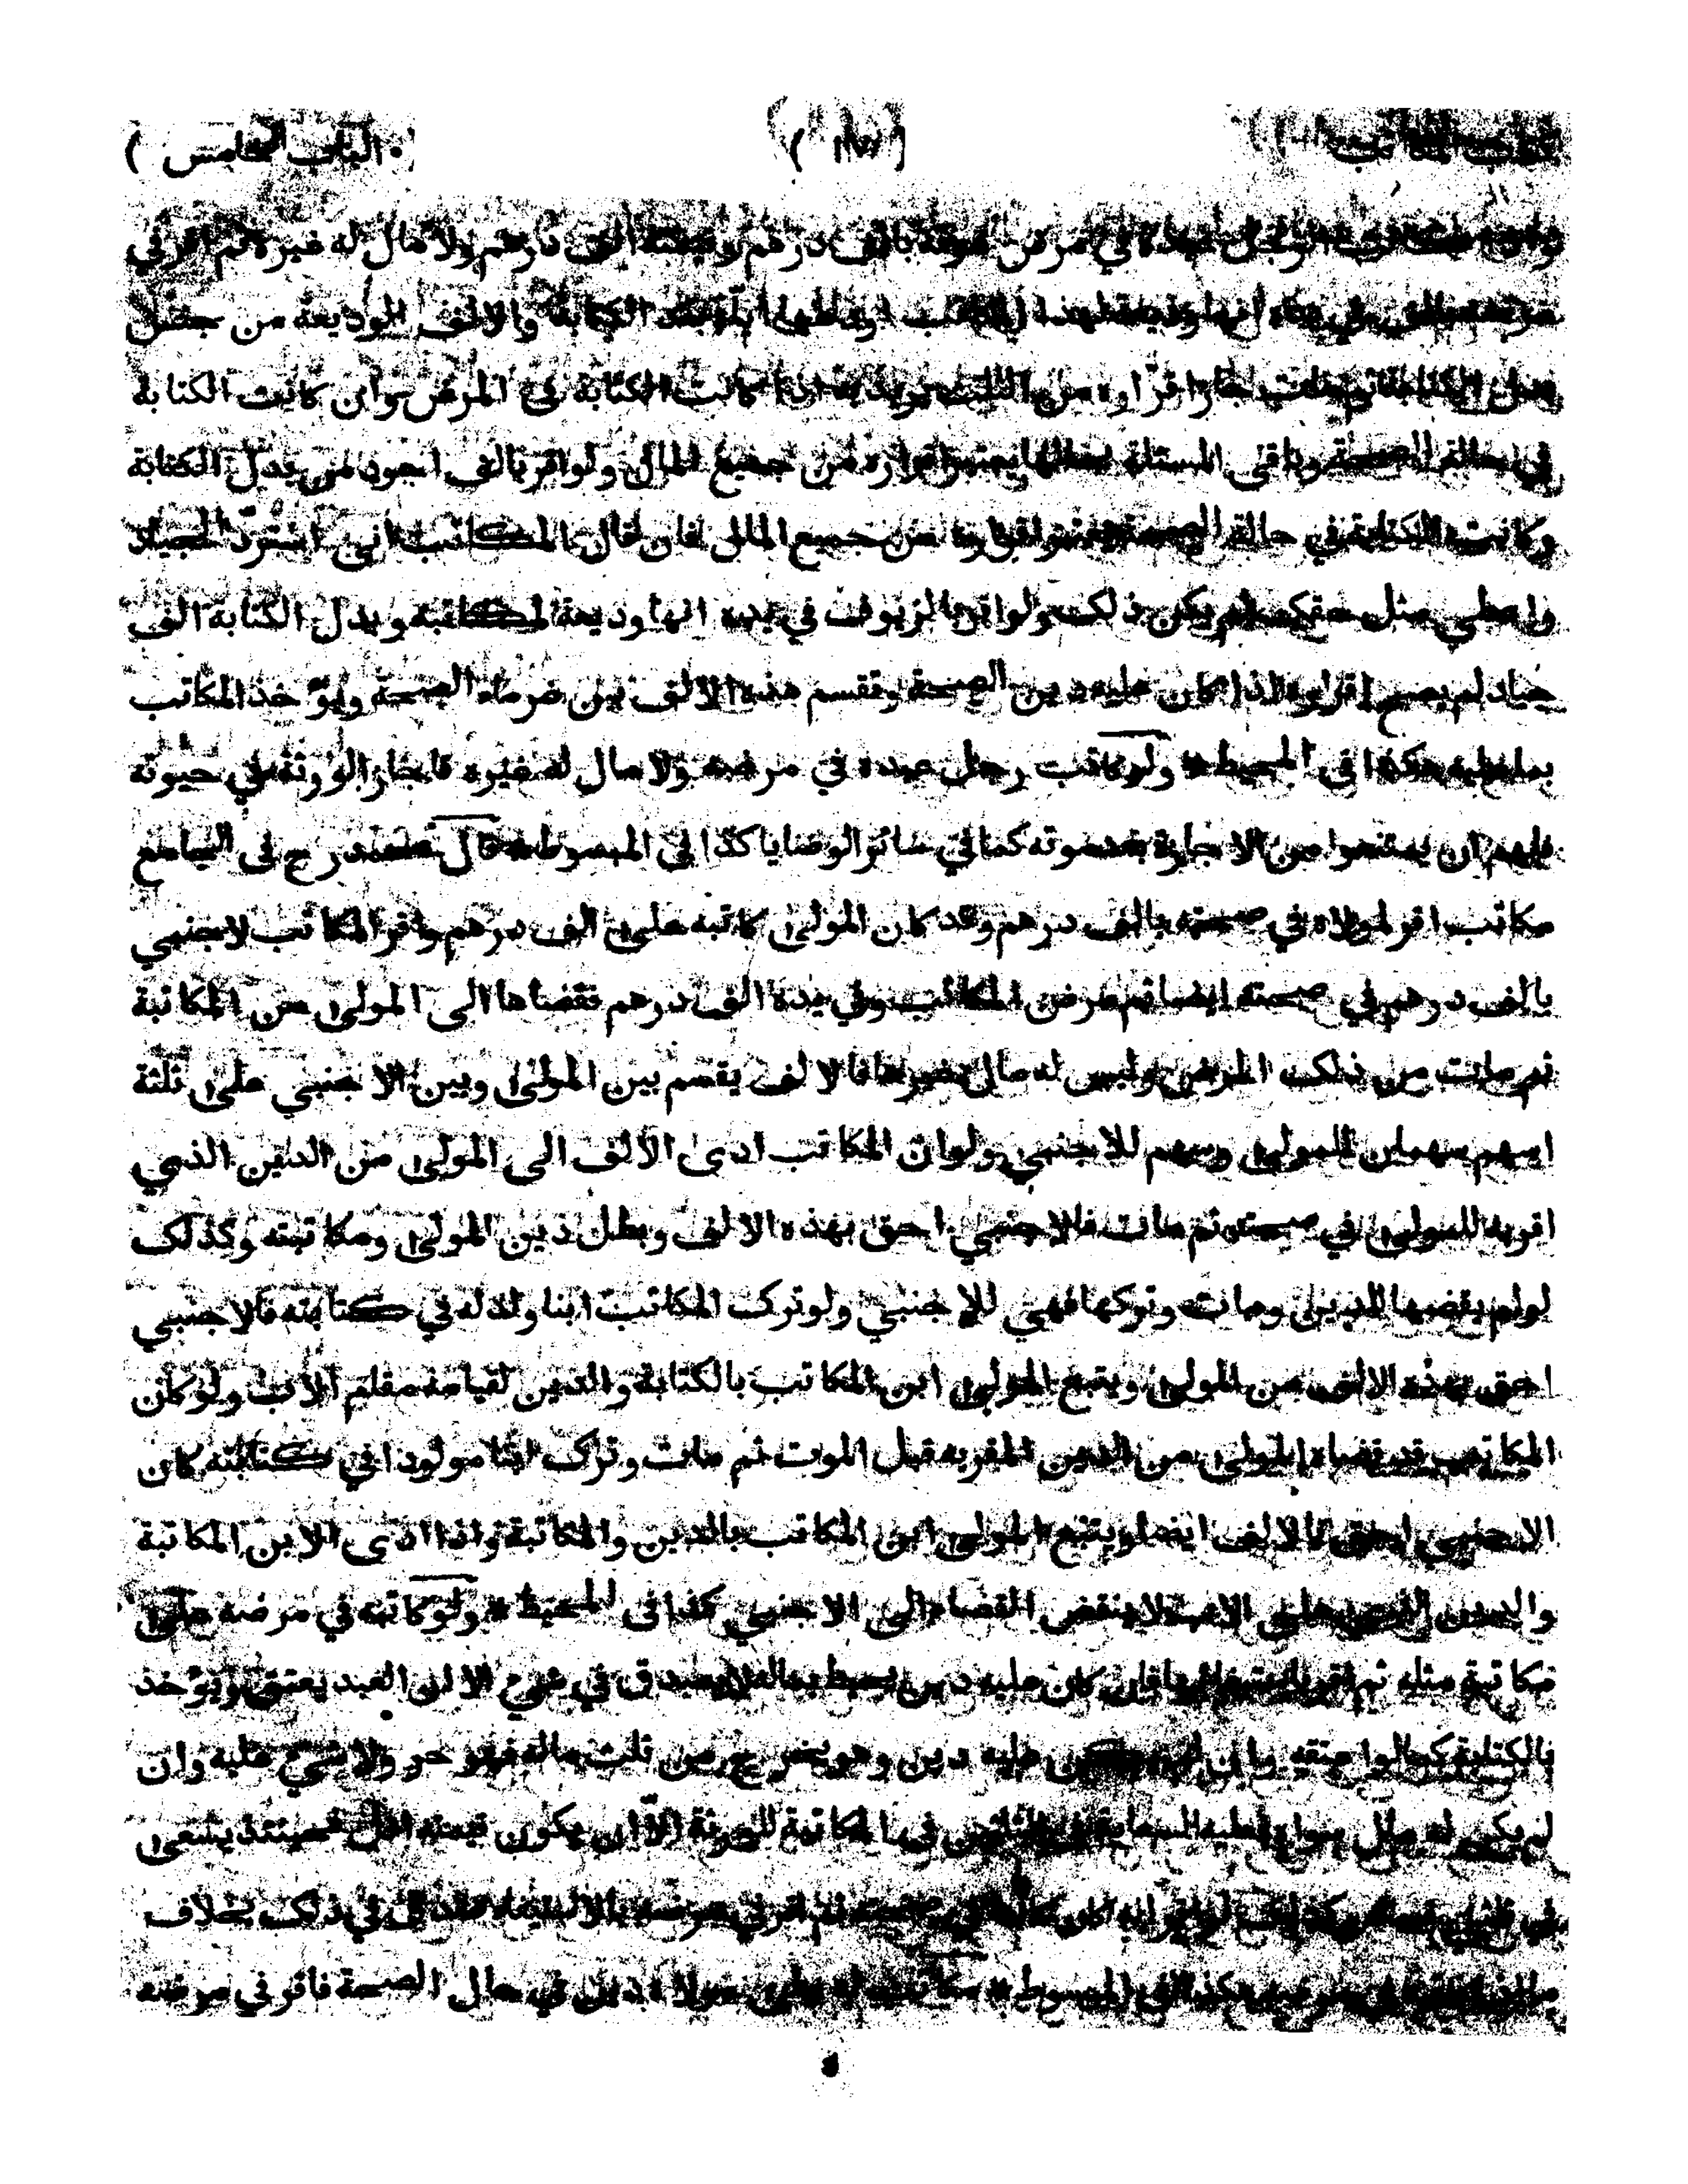 الباب الخامس )
في مرض موته بالف درهم وقيمته الف درهم ولا مال له غيره ثم اقر في
بدل الكتابة والالف الوديعة من جنس
بدل الكتابة ثم مات اذا كانت الكتابة في المرض وان كانت الكتابة
في حالة الصحة وباقي المسئلة بحالها يعتبر اقراره من جميع المال ولو اقر بالف اجود من بدل الكتابة
وكانت الكتابة في حالة الصحة من جميع المال فان قال المكاتب اني استرد الجياد
واعطي مثل حقك لم يكن ذلك ولو اقر بالزيوف في يده انها وديعة المكاتبة وبدل الكتابة الف
جياد لم يصح اقراره اذا كان عليه دين الصحة وتقسم هذه الالف بين غرماء الصحة ويؤخذ المكاتب
بما عليه هكذا في المحيط * ولو كاتب رجل عبده في مرضه ولا مال له غيره فاجاز الورثة في حيوته
فلهم ان يمتنعوا من الاجازة بعد موته كما في سائر الوصايا كذا في المبسوط * قال محمد رح في الجامع
مكاتب اقر لمولاه في صحته بالف درهم وقد كان المولى كاتبه على الف درهم واقر المكاتب لاجنبي
بالف درهم في صحته ايضا ثم مرض المكاتب وفي يده الف درهم فقضاها الى المولى من المكاتبة
ثم مات من ذلك المرض وليس له مال غيرها فالالف يقسم بين المولى وبين الاجنبي على ثلثة
اسهم سهمان للمولى وسهم للاجنبي ولو ان المكاتب ادى الالف الى المولى من الدين الذي
اقر به للمولى في صحته ثم مات فالاجنبي احق بهذه الالف وبطل دين المولى ومكاتبته وكذلك
لو لم يقضها المولى ومات وتركها فهي للاجنبي ولو ترك المكاتب ابنا ولد له في كتابته فالاجنبي
احق بهذه الالف من المولى ويتبع المولى ابن المكاتب بالكتابة والدين لقيامه مقام الاب ولو كان
المكاتب قد قضاه المولى من الدين المقر به قبل الموت ثم مات وترك ابنا مولودا في كتابته كان
الاجنبي احق بالالف ايضا ويتبع المولى ابن المكاتب بالدين والمكاتبة واذا ادى الابن المكاتبة
والدين الذي على الاب لا ينقض القضاء الى الاجنبي كذا في المحيط * ولو كاتبه في مرضه على
مكاتبة مثله ثم اقر باستيفائها فان كان عليه دين يحيط بماله لا يصدق في شيء الا ان العبد يعتق ويؤخذ
بالكتابة كما لو اعتقه وان لم يكن عليه دين وهو يخرج من ثلث ماله فهو حر ولا شيء عليه وان
لم يكن له مال سواه فعليه السعاية في الثلثين في المكاتبة للورثة الا ان يكون قيمته اقل فحينئذ يسعى
في ثلثي قيمته ثم اقر في مرضه بالاستيفاء صدق في ذلك بخلاف
هكذا في المبسوط * مكاتب له على مولاه دين في حال الصحة فاقر في مرضه